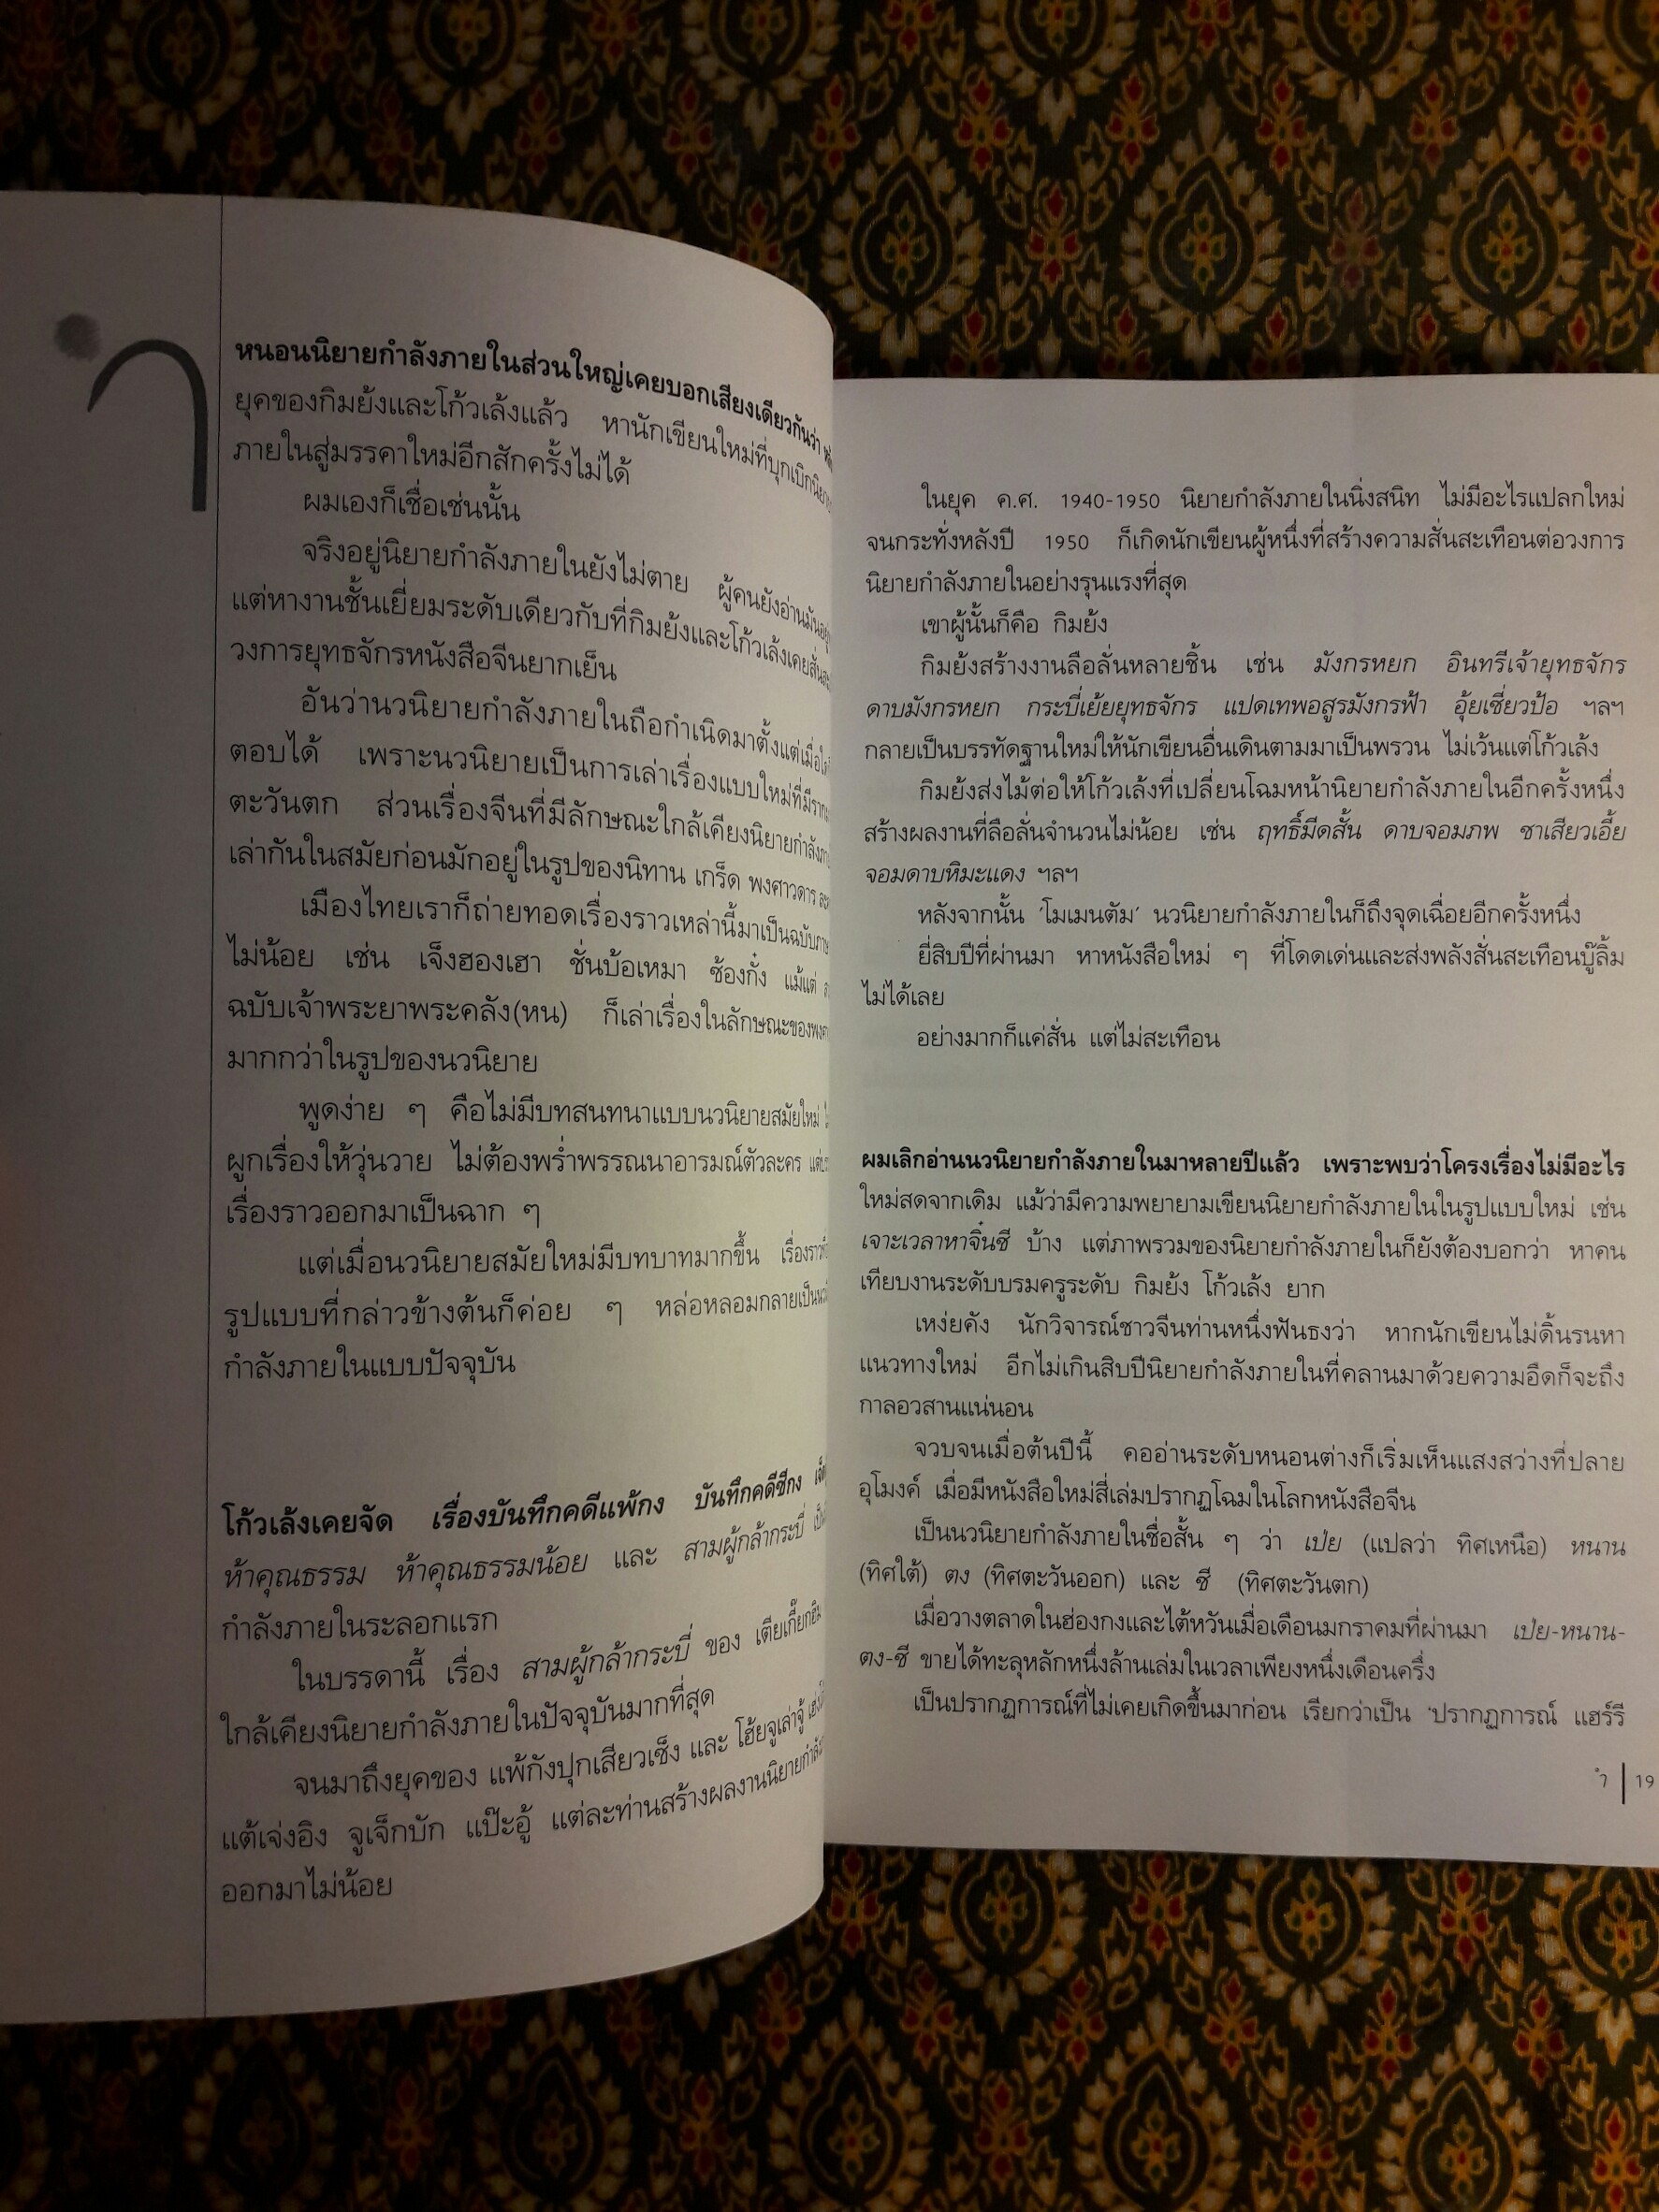 ำ
หนอนนิยายกำลังภายในส่วนใหญ่เคยบอกเสียงเดียวกันว่า
ยุคของกิมย้งและโก้วเล้งแล้ว หานักเขียนใหม่ที่บุกเบิก
ภายในสู่มรรคาใหม่อีกสักครั้งไม่ได้
ผมเองก็เชื่อเช่นนั้น
จริงอยู่นิยายกำลังภายในยังไม่ตาย ผู้คนยังอ่านมัน
แต่หางานชั้นเยี่ยมระดับเดียวกับที่กิมย้งและโก้วเล้งเคย
วงการยุทธจักรหนังสือจีนยากเย็น
อันว่านวนิยายกำลังภายในถือกำเนิดมาตั้งแต่
ตอบได้ เพราะนวนิยายเป็นการเล่าเรื่องแบบใหม่ที่มี
ตะวันตก ส่วนเรื่องจีนที่มีลักษณะใกล้เคียงนิยาย
เล่ากันในสมัยก่อนมักอยู่ในรูปของนิทาน เกร็ด พงศาวดาร
เมืองไทยเราก็ถ่ายทอดเรื่องราวเหล่านี้มาเป็น
ไม่น้อย เช่น เจ็งฮองเฮา ชั่นบ้อเหมา ซ้องกั๋ง แม้แต่
ฉบับเจ้าพระยาพระคลัง(หน) ก็เล่าเรื่องในลักษณะของ
มากกว่าในรูปของนวนิยาย
พูดง่าย ๆ คือไม่มีบทสนทนาแบบนวนิยายสมัยใหม่
ผูกเรื่องให้วุ่นวาย ไม่ต้องพร่ำพรรณนาอารมณ์ตัวละคร
เรื่องราวออกมาเป็นฉาก ๆ
แต่เมื่อนวนิยายสมัยใหม่มีบทบาทมากขึ้น
รูปแบบที่กล่าวข้างต้นก็ค่อย ๆ หล่อหลอมกลายเป็น
กำลังภายในแบบปัจจุบัน
โก้วเล้งเคยจัด เรื่องบันทึกคดีแพ้กง บันทึกคดีซีกง
ห้าคุณธรรม ห้าคุณธรรมน้อย และ สามผู้กล้ากระบี่
กำลังภายในระลอกแรก
ในบรรดานี้ เรื่อง สามผู้กล้ากระบี่ ของ
ใกล้เคียงนิยายกำลังภายในปัจจุบันมากที่สุด
จนมาถึงยุคของ แพ้กังปุกเสียวเซ็ง และ โฮ้ยจูเล่าจู้
แต้เจ่งอิง จูเจ็กบัก แป๊ะอู้ แต่ละท่านสร้างผลงานนิยาย
ออกมาไม่น้อย
ในยุค ค.ศ. 1940-1950 นิยายกำลังภายในนิ่งสนิท ไม่มีอะไรแปลกใหม่
จนกระทั่งหลังปี 1950 ก็เกิดนักเขียนผู้หนึ่งที่สร้างความสั่นสะเทือนต่อวงการ
นิยายกำลังภายในอย่างรุนแรงที่สุด
เขาผู้นั้นก็คือ กิมย้ง
กิมย้งสร้างงานลือลั่นหลายชิ้น เช่น มังกรหยก อินทรีเจ้ายุทธจักร
ดาบมังกรหยก กระบี่เย้ยยุทธจักร แปดเทพอสูรมังกรฟ้า อุ้ยเซี่ยวป้อ ฯลฯ
กลายเป็นบรรทัดฐานใหม่ให้นักเขียนอื่นเดินตามมาเป็นพรวน ไม่เว้นแต่โก้วเล้ง
กิมย้งส่งไม้ต่อให้โก้วเล้งที่เปลี่ยนโฉมหน้านิยายกำลังภายในอีกครั้งหนึ่ง
สร้างผลงานที่ลือลั่นจำนวนไม่น้อย เช่น ฤทธิ์มีดสั้น ดาบจอมภพ ชาเสียวเอี้ย
จอมดาบหิมะแดง ฯลฯ
หลังจากนั้น 'โมเมนตัม' นวนิยายกำลังภายในก็ถึงจุดเฉื่อยอีกครั้งหนึ่ง
ยี่สิบปีที่ผ่านมา หาหนังสือใหม่ ๆ ที่โดดเด่นและส่งพลังสั่นสะเทือนบู๊ลิ้ม
ไม่ได้เลย
อย่างมากก็แค่สั่น แต่ไม่สะเทือน
ผมเลิกอ่านนวนิยายกำลังภายในมาหลายปีแล้ว เพราะพบว่าโครงเรื่องไม่มีอะไร
ใหม่สดจากเดิม แม้ว่ามีความพยายามเขียนนิยายกำลังภายในในรูปแบบใหม่ เช่น
เจาะเวลาหาจิ๋นซี บ้าง แต่ภาพรวมของนิยายกำลังภายในก็ยังต้องบอกว่า หาคน
เทียบงานระดับบรมครูระดับ กิมย้ง โก้วเล้ง ยาก
เหง่ยคัง นักวิจารณ์ชาวจีนท่านหนึ่งฟันธงว่า หากนักเขียนไม่ดิ้นรนหา
แนวทางใหม่ อีกไม่เกินสิบปีนิยายกำลังภายในที่คลานมาด้วยความอืดก็จะถึง
กาลอวสานแน่นอน
จวบจนเมื่อต้นปีนี้ คออ่านระดับหนอนต่างก็เริ่มเห็นแสงสว่างที่ปลาย
อุโมงค์ เมื่อมีหนังสือใหม่สี่เล่มปรากฏโฉมในโลกหนังสือจีน
เป็นนวนิยายกำลังภายในชื่อสั้น ๆ ว่า เป่ย (แปลว่า ทิศเหนือ) หนาน
(ทิศใต้) ตง (ทิศตะวันออก) และ ซี (ทิศตะวันตก)
เมื่อวางตลาดในฮ่องกงและไต้หวันเมื่อเดือนมกราคมที่ผ่านมา เป่ย-หนาน-
ตง-ซี ขายได้ทะลุหลักหนึ่งล้านเล่มในเวลาเพียงหนึ่งเดือนครึ่ง
เป็นปรากฏการณ์ที่ไม่เคยเกิดขึ้นมาก่อน เรียกว่าเป็น 'ปรากฏการณ์ แฮร์รี
ำ 19